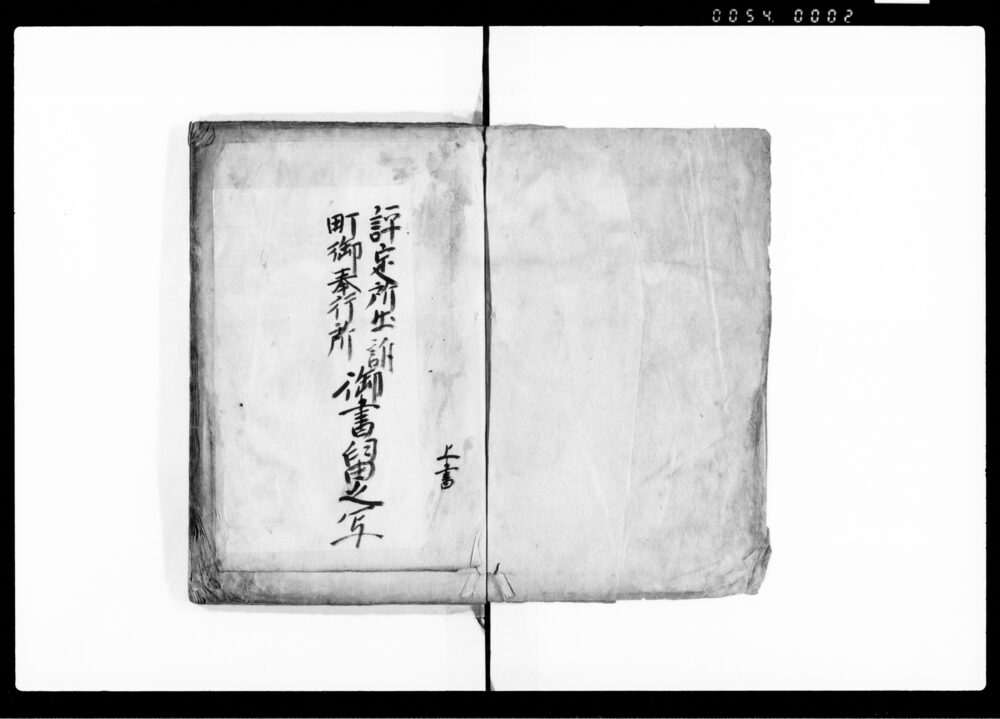 0054. 0002
上書
評定所出訴
町御奉行所
御書留之写